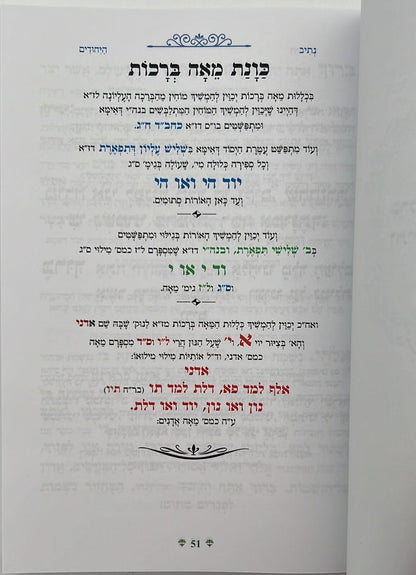 נְתִיב הַיִּחוּדִים
כַּוָּנַת מֵאָה בְּרָכוֹת
בִּכְלָלוּת מֵאָה בְּרָכוֹת יְכַוֵּין לְהַמְשִׁיךְ מוֹחִין מֵהַבְּרֵכָה הָעֶלְיוֹנָה לז"א
דְּהַיְינוּ שֶׁיְּכַוֵּין לְהַמְשִׁיךְ הַמּוֹחִין הַמִּתְלַבְּשִׁים בנה"י דְּאִימָּא
וּמִתְפַּשְּׁטִים בו"ס דז"א כחב"ד ח"ג.
וְעוֹד מִתְפַּשֵּׁט עֲטֶרֶת הַיְסוֹד דְּאִימָּא בִּשְׁלִישׁ עֶלְיוֹן דְּתִפְאֶרֶת דז"א
וְכָל סְפִירָה כְּלוּלָה מִי', שֶׁעוֹלָה בְּגִימ' ס"ג
יוד הי ואו הי
וְעַד כָּאן הָאוֹרוֹת סְתוּמִים.
וְעוֹד יְכַוֵּין לְהַמְשִׁיךְ הָאוֹרוֹת בְּגִילּוּי וּמִתְפַּשְּׁטִים
בְּב' שְׁלִישֵׁי תִּפְאֶרֶת, ובנה"י דז"א שֶׁמִּסְפָּרָם ל"ז כמס' מִילּוּי ס"ג
וד י או י
וס"ג ול"ז גימ' מֵאָה.
ואח"כ יְכַוֵּין לְהַמְשִׁיךְ כְּלָלוּת הַמֵּאָה בְּרָכוֹת מז"א לְנוּק' שֶׁבָּהּ שֵׁם אדני
וְהָא' בְּצִיּוּר יוי א וי' שֶׁעַל הַנּוּן הֲרֵי ל"ו וס"ד מִסְפָּרָם מֵאָה
כמס' אדני, וד"ל אוֹתִיּוֹת מִילּוּי מִילּוּאוֹ:
אדני
אלף למד פא, דלת למד תו (בר"ה תיו)
נון ואו נון, יוד ואו דלת.
ע"ה כמס' מֵאָה אֲדָנִים:
51